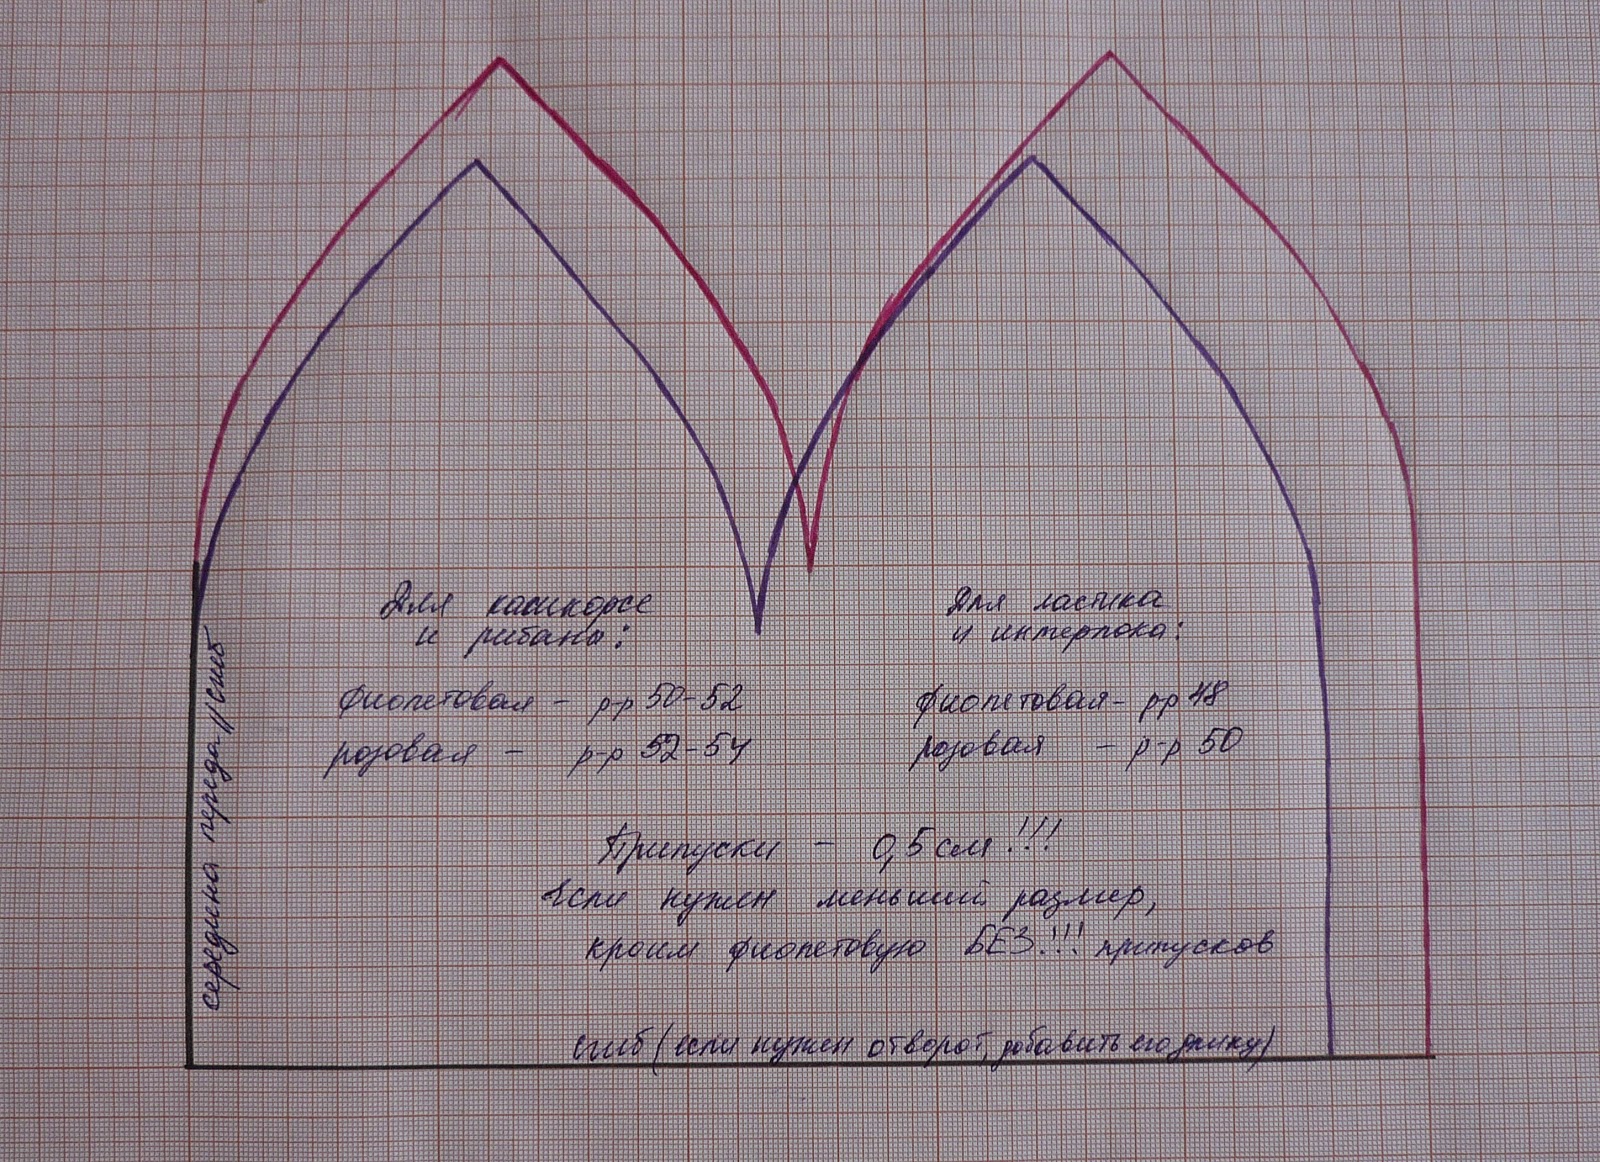 Для кашкорсе
и рибаны:
фиолетовая - р-р 50-52
розовая - р-р 52-54
Для ластика
и интерлока:
фиолетовая - рр 48
розовая - р-р 50
Припуски - 0,5 см!!!
Если нужен меньший размер,
кроим фиолетовую БЕЗ!!! припусков
середина переда//сгиб
сгиб (если нужен отворот, добавить его длину)